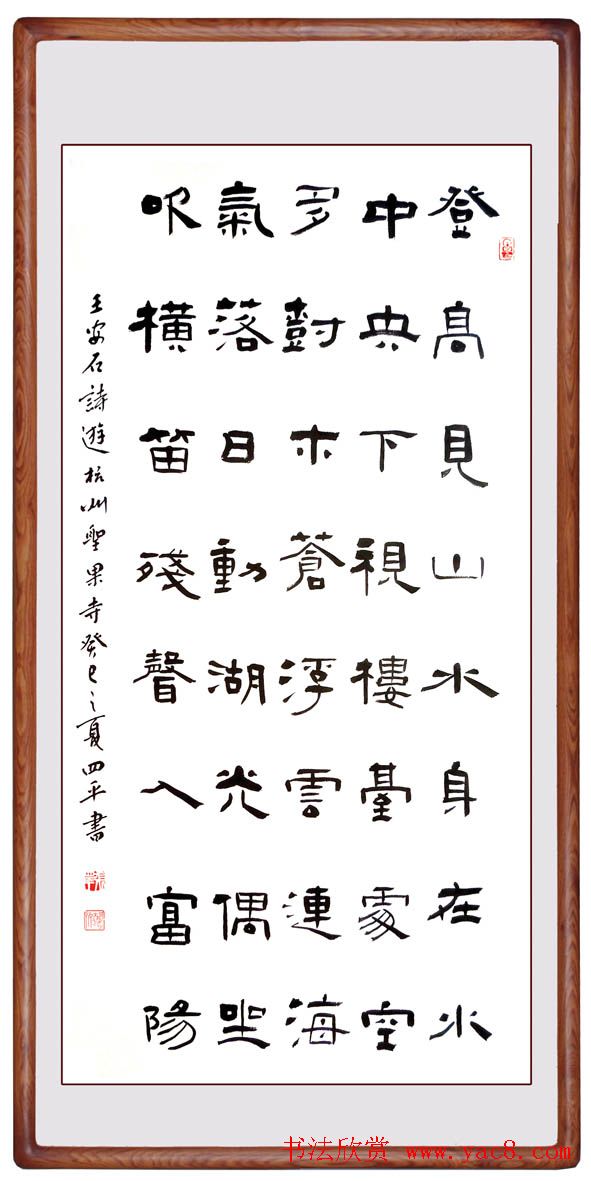 登高見山水身在水
中央下視樓臺處空
多尌木蒼浮雲連海
氣落日動湖光偶坐
吹橫笛殘聲入富陽
王安石詩遊杭州聖果寺癸巳之夏四平書
书法欣赏 www.yac8.com